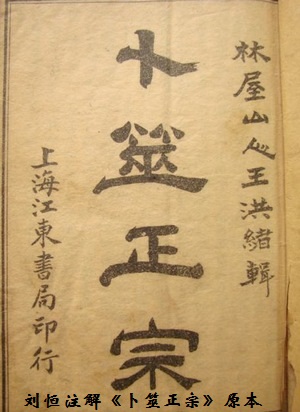 林屋山人王洪緒輯
卜筮正宗
上海江東書局印行
刘恒注解《卜筮正宗》原本